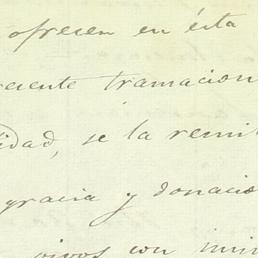 ofrecen en ésta
reciente tramacion
lidad, se la remi
gracia y donacio
vivos con inir